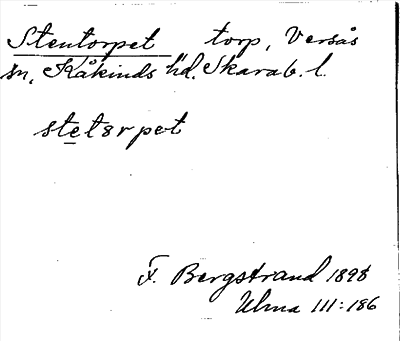 Stentorpet torp, Versås
sn, Kåkinds hd. Skarab. l.
stetorpet
F. Bergstrand 1898
Ulma 111:186